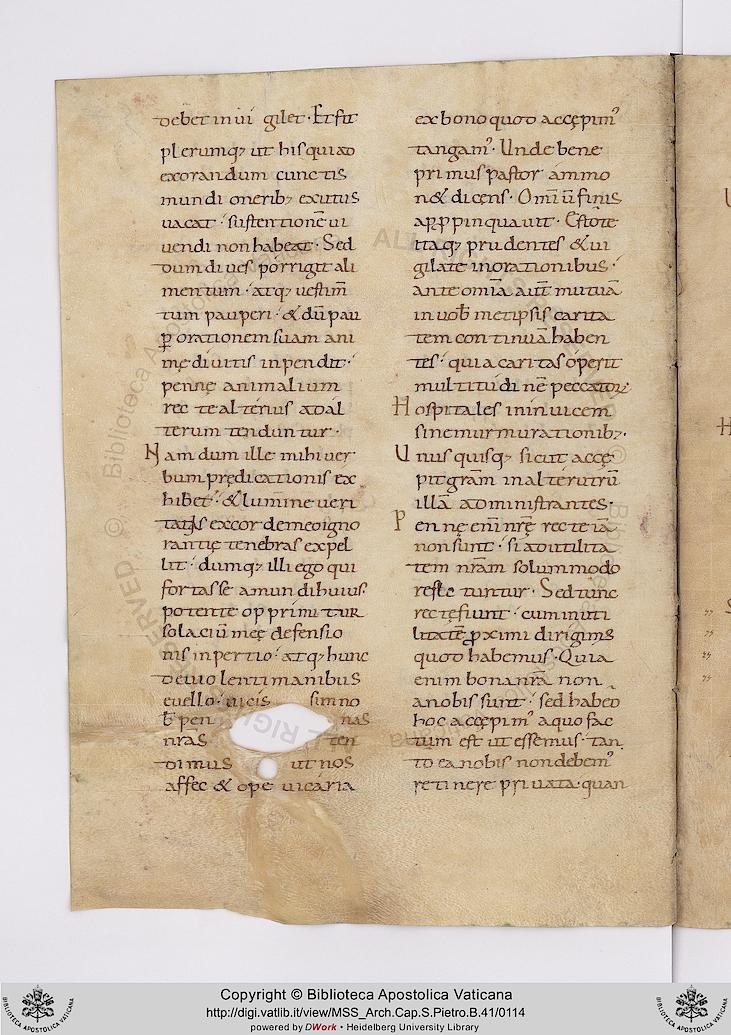 debet inui gilet · Et fit
plerumq; ut his qui ad
exorandum cunctis
mundi onerib; exutus
uacat · sustentionē ui
uendi non habeat · Sed
dum diues porrigit ali
mentum · atq; uestim̄
tum pauperi · & dū pau
p̱ orationem suam ani
mę diuitis inpendit ·
pennę animalium
recte alterius ad al
terum tenduntur ·
Nam dum ille mihi uer
bum prędicationis ex
hibet · & lumine ueri
tatis excorde meo igno
rantię tenebras expel
lit · dumq; illi ego qui
fortasse a mundi huius
potente opprimitur
solaciū meę defensio
nis inpertio · atq; hunc
deuiolenti manibus
euello · uicis sim no
b̄ pen nas
nr̄as ten
dimus ut nos
affec & ope uicaria
ex bono quod accępim᾽
tangam᾽ · Unde bene
primus pastor ammo
n& dicens · Omī ū finis
appropinquauit · Estote
itaq; prudentes & ui
gilate inorationibus ·
ante omīa aut̄ mutuā
in uob̄ metipsis carita
tem continuā haben
tes · quia caritas operit
multitudinē peccatorꝝ
Hospitales ininuicem
sine murmurationib; ·
Unus quisq; sicut accę
pit grām in alterutrū
illā administrantes ·
Pennę enī nrę̄ recte iā
non sunt · si ad utilita
tem nr̄am solummodo
reflectuntur · Sed tunc
rectę fiunt · cum in uti
litatē p̱ximi dirigim᾽
quod habemus · Quia
enim bona nr̄a non
a nobis sunt · sed ab eo
hoc accępim᾽ a quo fac
tum est ut essemus · tan
to ea nobis non debem᾽
retinere priuata · quan
Copyright © Biblioteca Apostolica Vaticana
http://digi.vatlib.it/view/MSS_Arch.Cap.S.Pietro.B.41/0114
powered by DWork • Heidelberg University Library